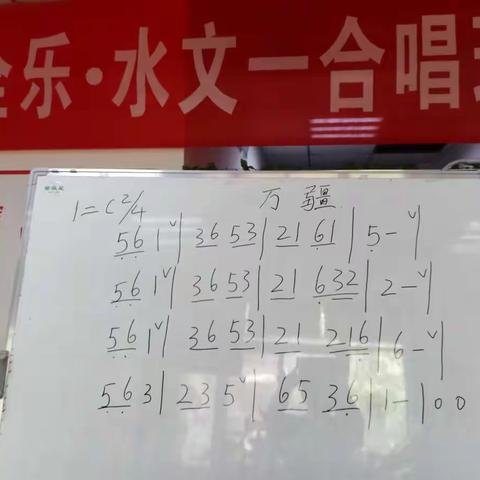 全乐·水文一合唱
万疆
1=C 2/4
561ˇ| 36 53| 21 61| 5-ˇ|
561ˇ| 36 53| 21 632| 2-ˇ|
561ˇ| 36 53| 21 216| 6-ˇ|
563| 23 5ˇ| 65 36| 1-| 00